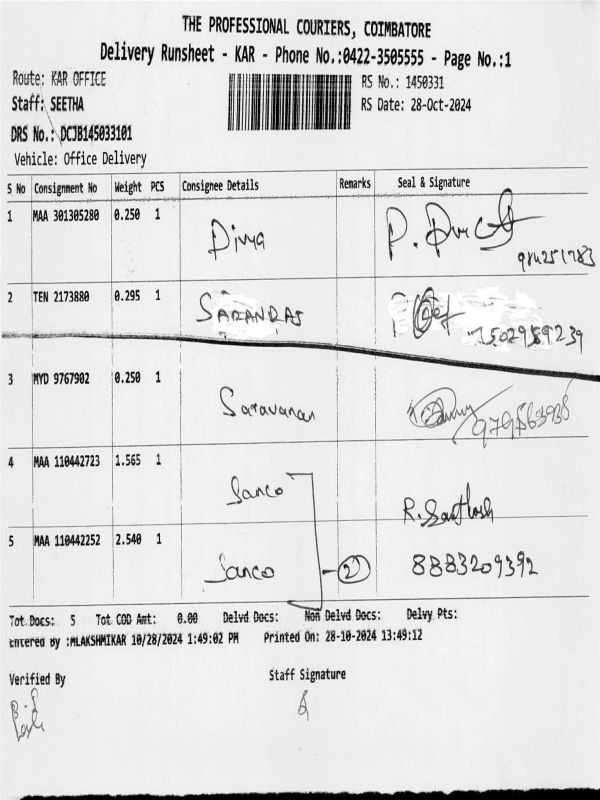 THE PROFESSIONAL COURIERS, COIMBATORE
Delivery Runsheet - KAR - Phone No.:0422-3505555 - Page No.:1
Route: KAR OFFICE
RS No.: 1450331
Staff: SEETHA
RS Date: 28-Oct-2024
DRS No.: DCJB145033101
Vehicle: Office Delivery
S No Consignment No Weight PCS Consignee Details Remarks Seal & Signature
1 MAA 301305280 0.250 1 Divya
2 TEN 2173880 0.295 1 SARANRAJ 7502959239
3 MYD 9767902 0.250 1 Saravanan
4 MAA 110442723 1.565 1 Sanco R. Santhosh
5 MAA 110442252 2.540 1 Sanco 2 8883209392
Tot Docs: 5 Tot COD Amt: 0.00 Delvd Docs: Non Delvd Docs: Delvy Pts:
Entered By :MLAKSHMIKAR 10/28/2024 1:49:02 PM Printed On: 28-10-2024 13:49:12
Verified By Staff Signature